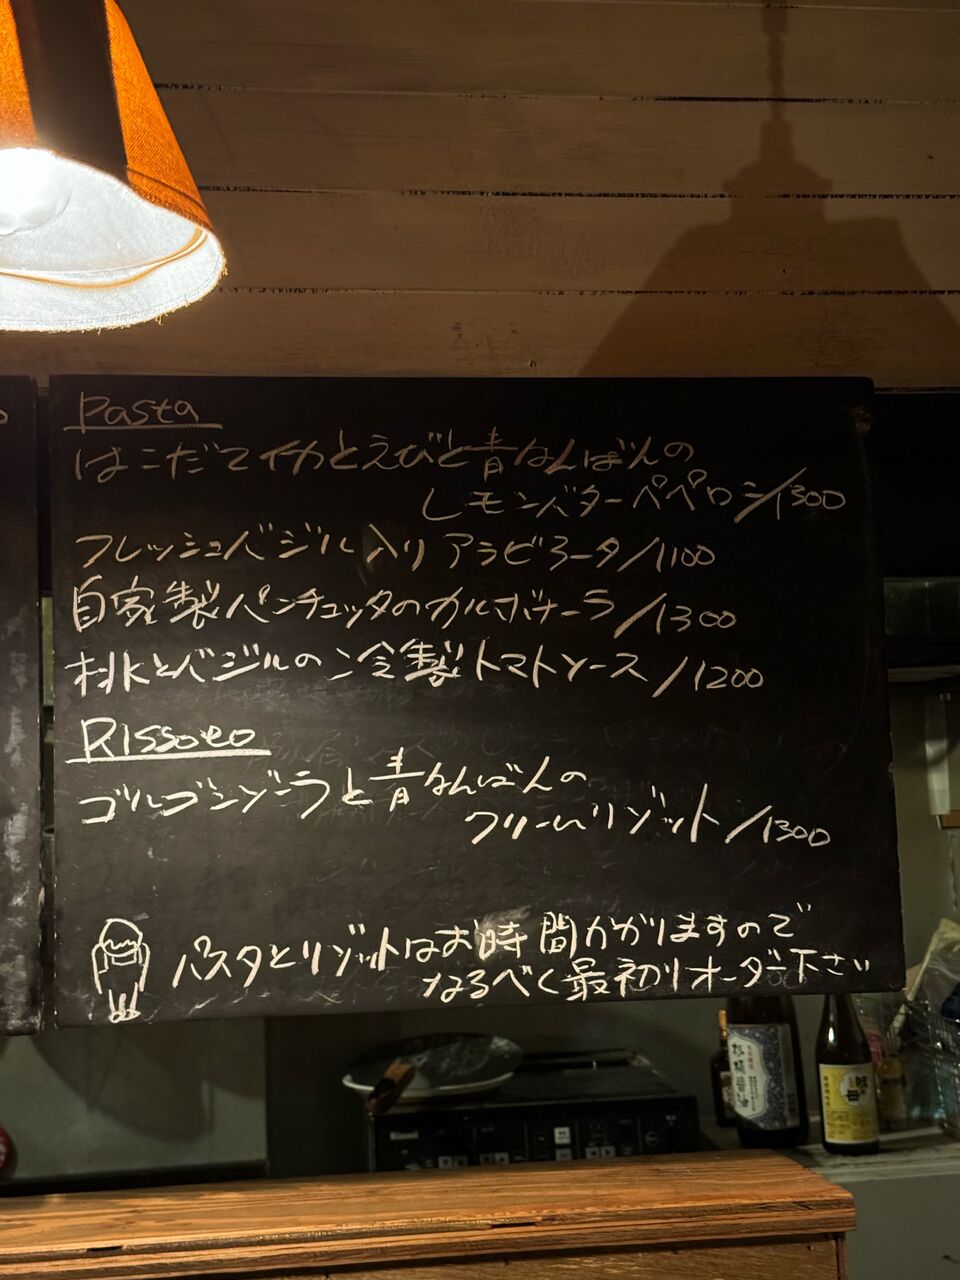 Pasta
はこだてイカとえびと青なんばんの
レモンバターペペロンシ/1300
フレッシュバジル入りアラビアータ/1100
自家製パンチェッタのカルボナーラ/1300
桃とバジルの冷製トマトソース/1200
Rissoto
ゴルゴンゾーラと青なんばんの
クリームリゾット/1300
パスタとリゾットはお時間かかりますので
なるべく最初りオーダー下さい
Rinnai